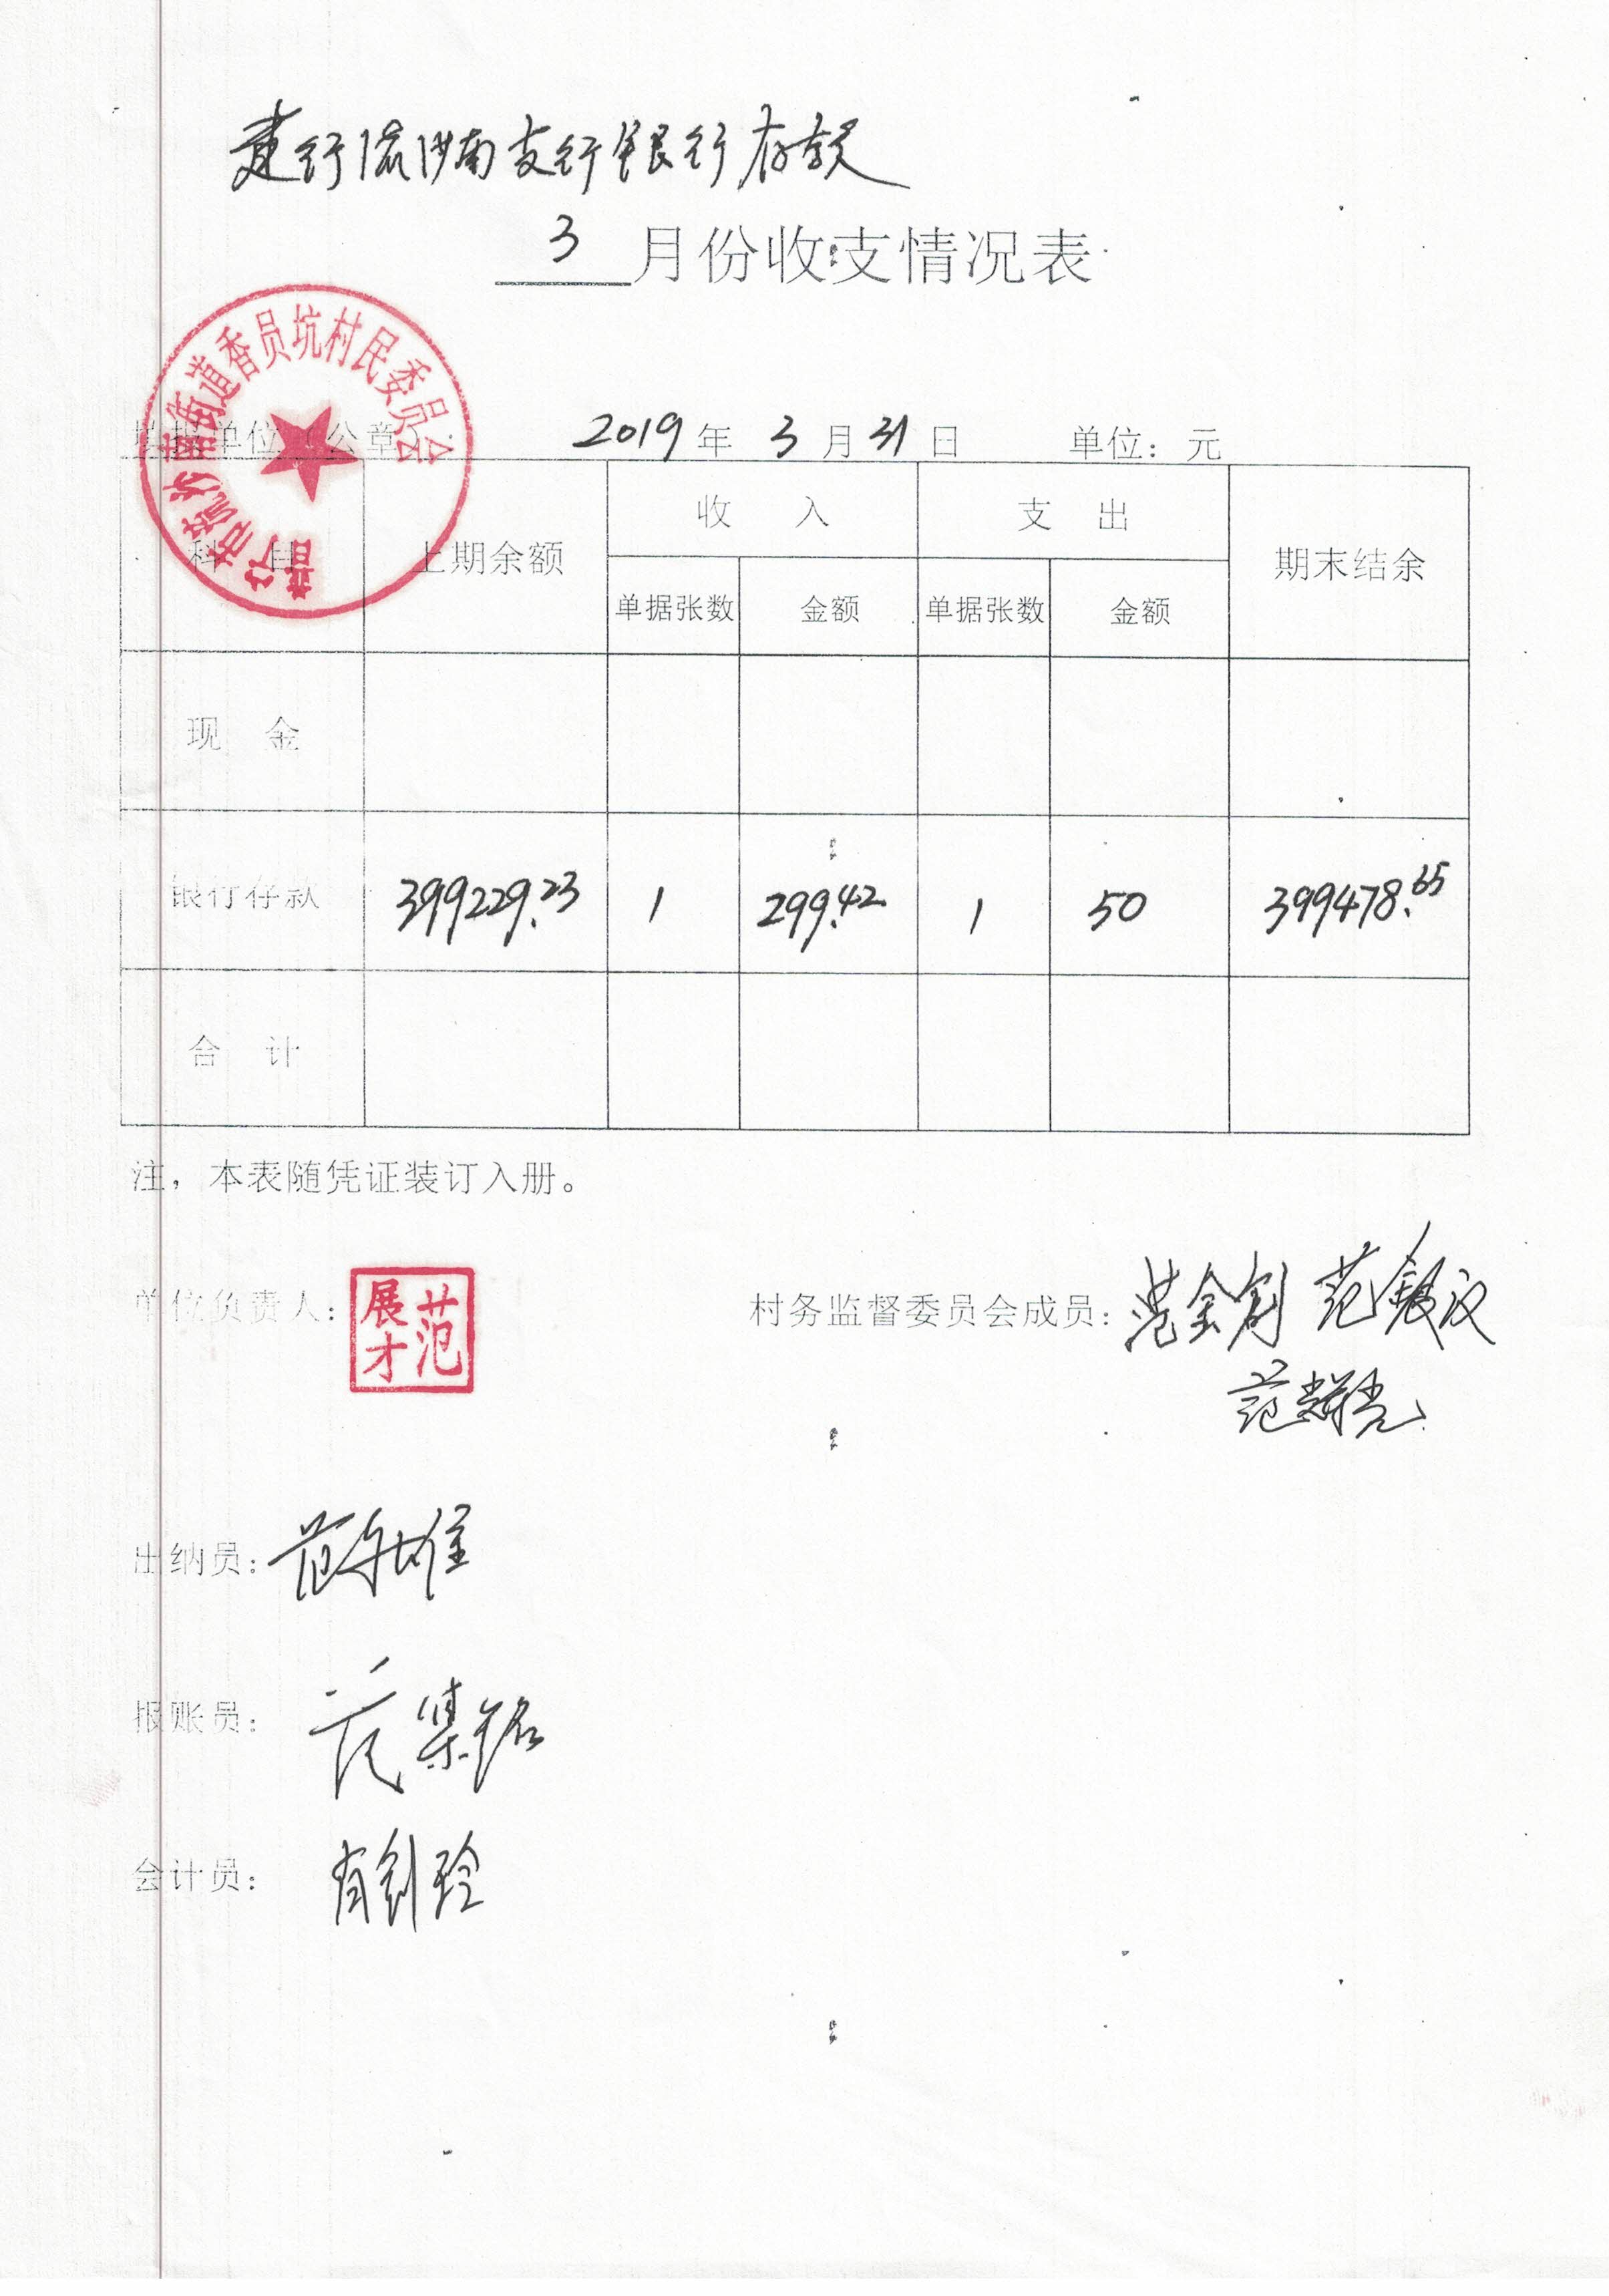 建行流沙南支行银行存款
3 月份收支情况表
普宁市流沙南街道香员坑村民委员会
填报单位(公章): 2019年 3月31日 单位:元
科 目 上期余额 收 入 支 出 期末结余
单据张数 金额 单据张数 金额
现 金
银行存款 399229.23 1 299.42 1 50 399478.65
合 计
注,本表随凭证装订入册。
单位负责人: 范展才 村务监督委员会成员: 范金创 范银汉
范辉光
出纳员: 范
报账员: 范集铭
会计员: